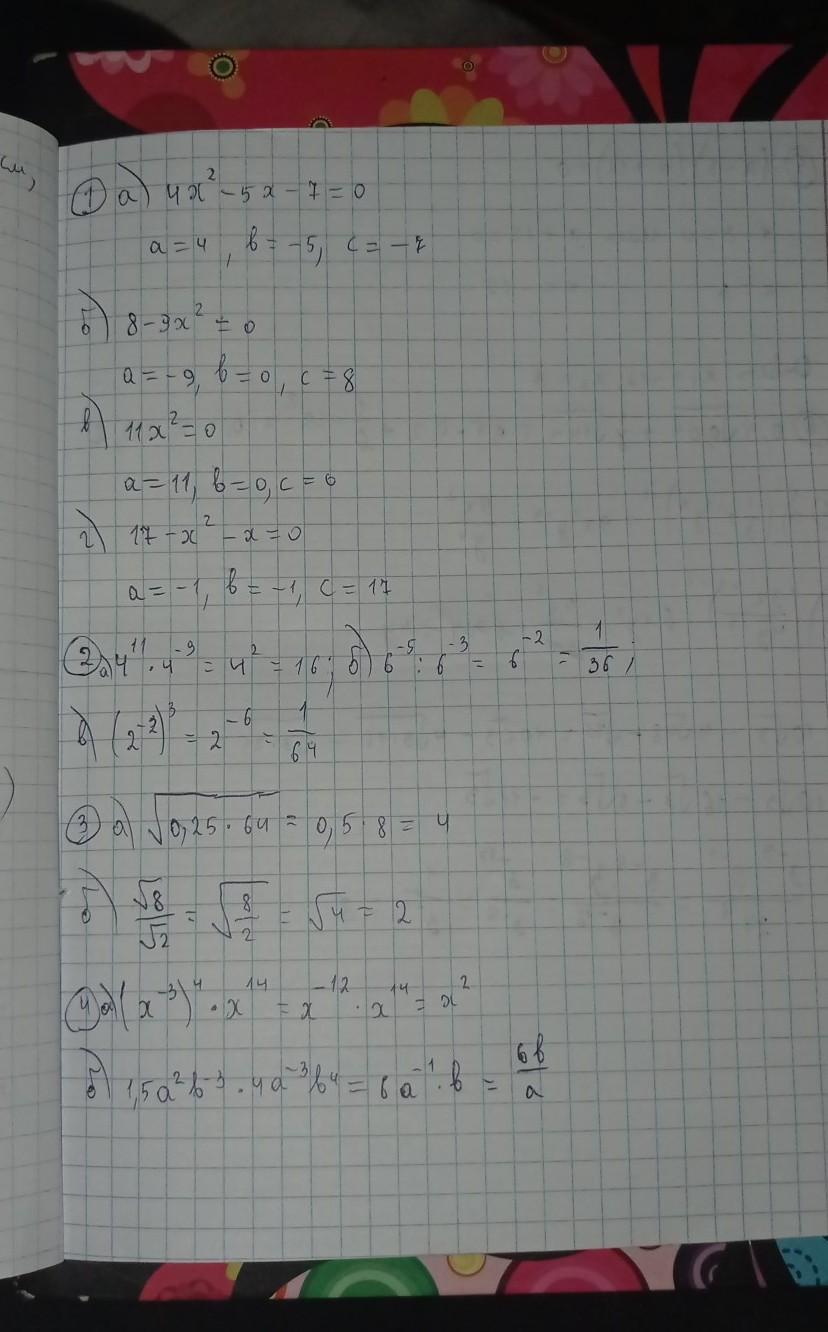 см,
① а) 4x² - 5x - 7 = 0
a = 4, b = -5, c = -7
б) 8 - 9x² = 0
a = -9, b = 0, c = 8
в) 11x² = 0
a = 11, b = 0, c = 0
г) 17 - x² - x = 0
a = -1, b = -1, c = 17
② а) 4¹¹ · 4⁻⁹ = 4² = 16; б) 6⁻⁵ : 6⁻³ = 6⁻² = 1/36;
в) (2⁻²)³ = 2⁻⁶ = 1/64
③ а) √(0,25 · 64) = 0,5 · 8 = 4
б) √8/√2 = √(8/2) = √4 = 2
④ а) (x⁻³)⁴ · x¹⁴ = x⁻¹² · x¹⁴ = x²
б) 1,5a²b⁻³ · 4a⁻³b⁴ = 6a⁻¹ · b = 6b/a